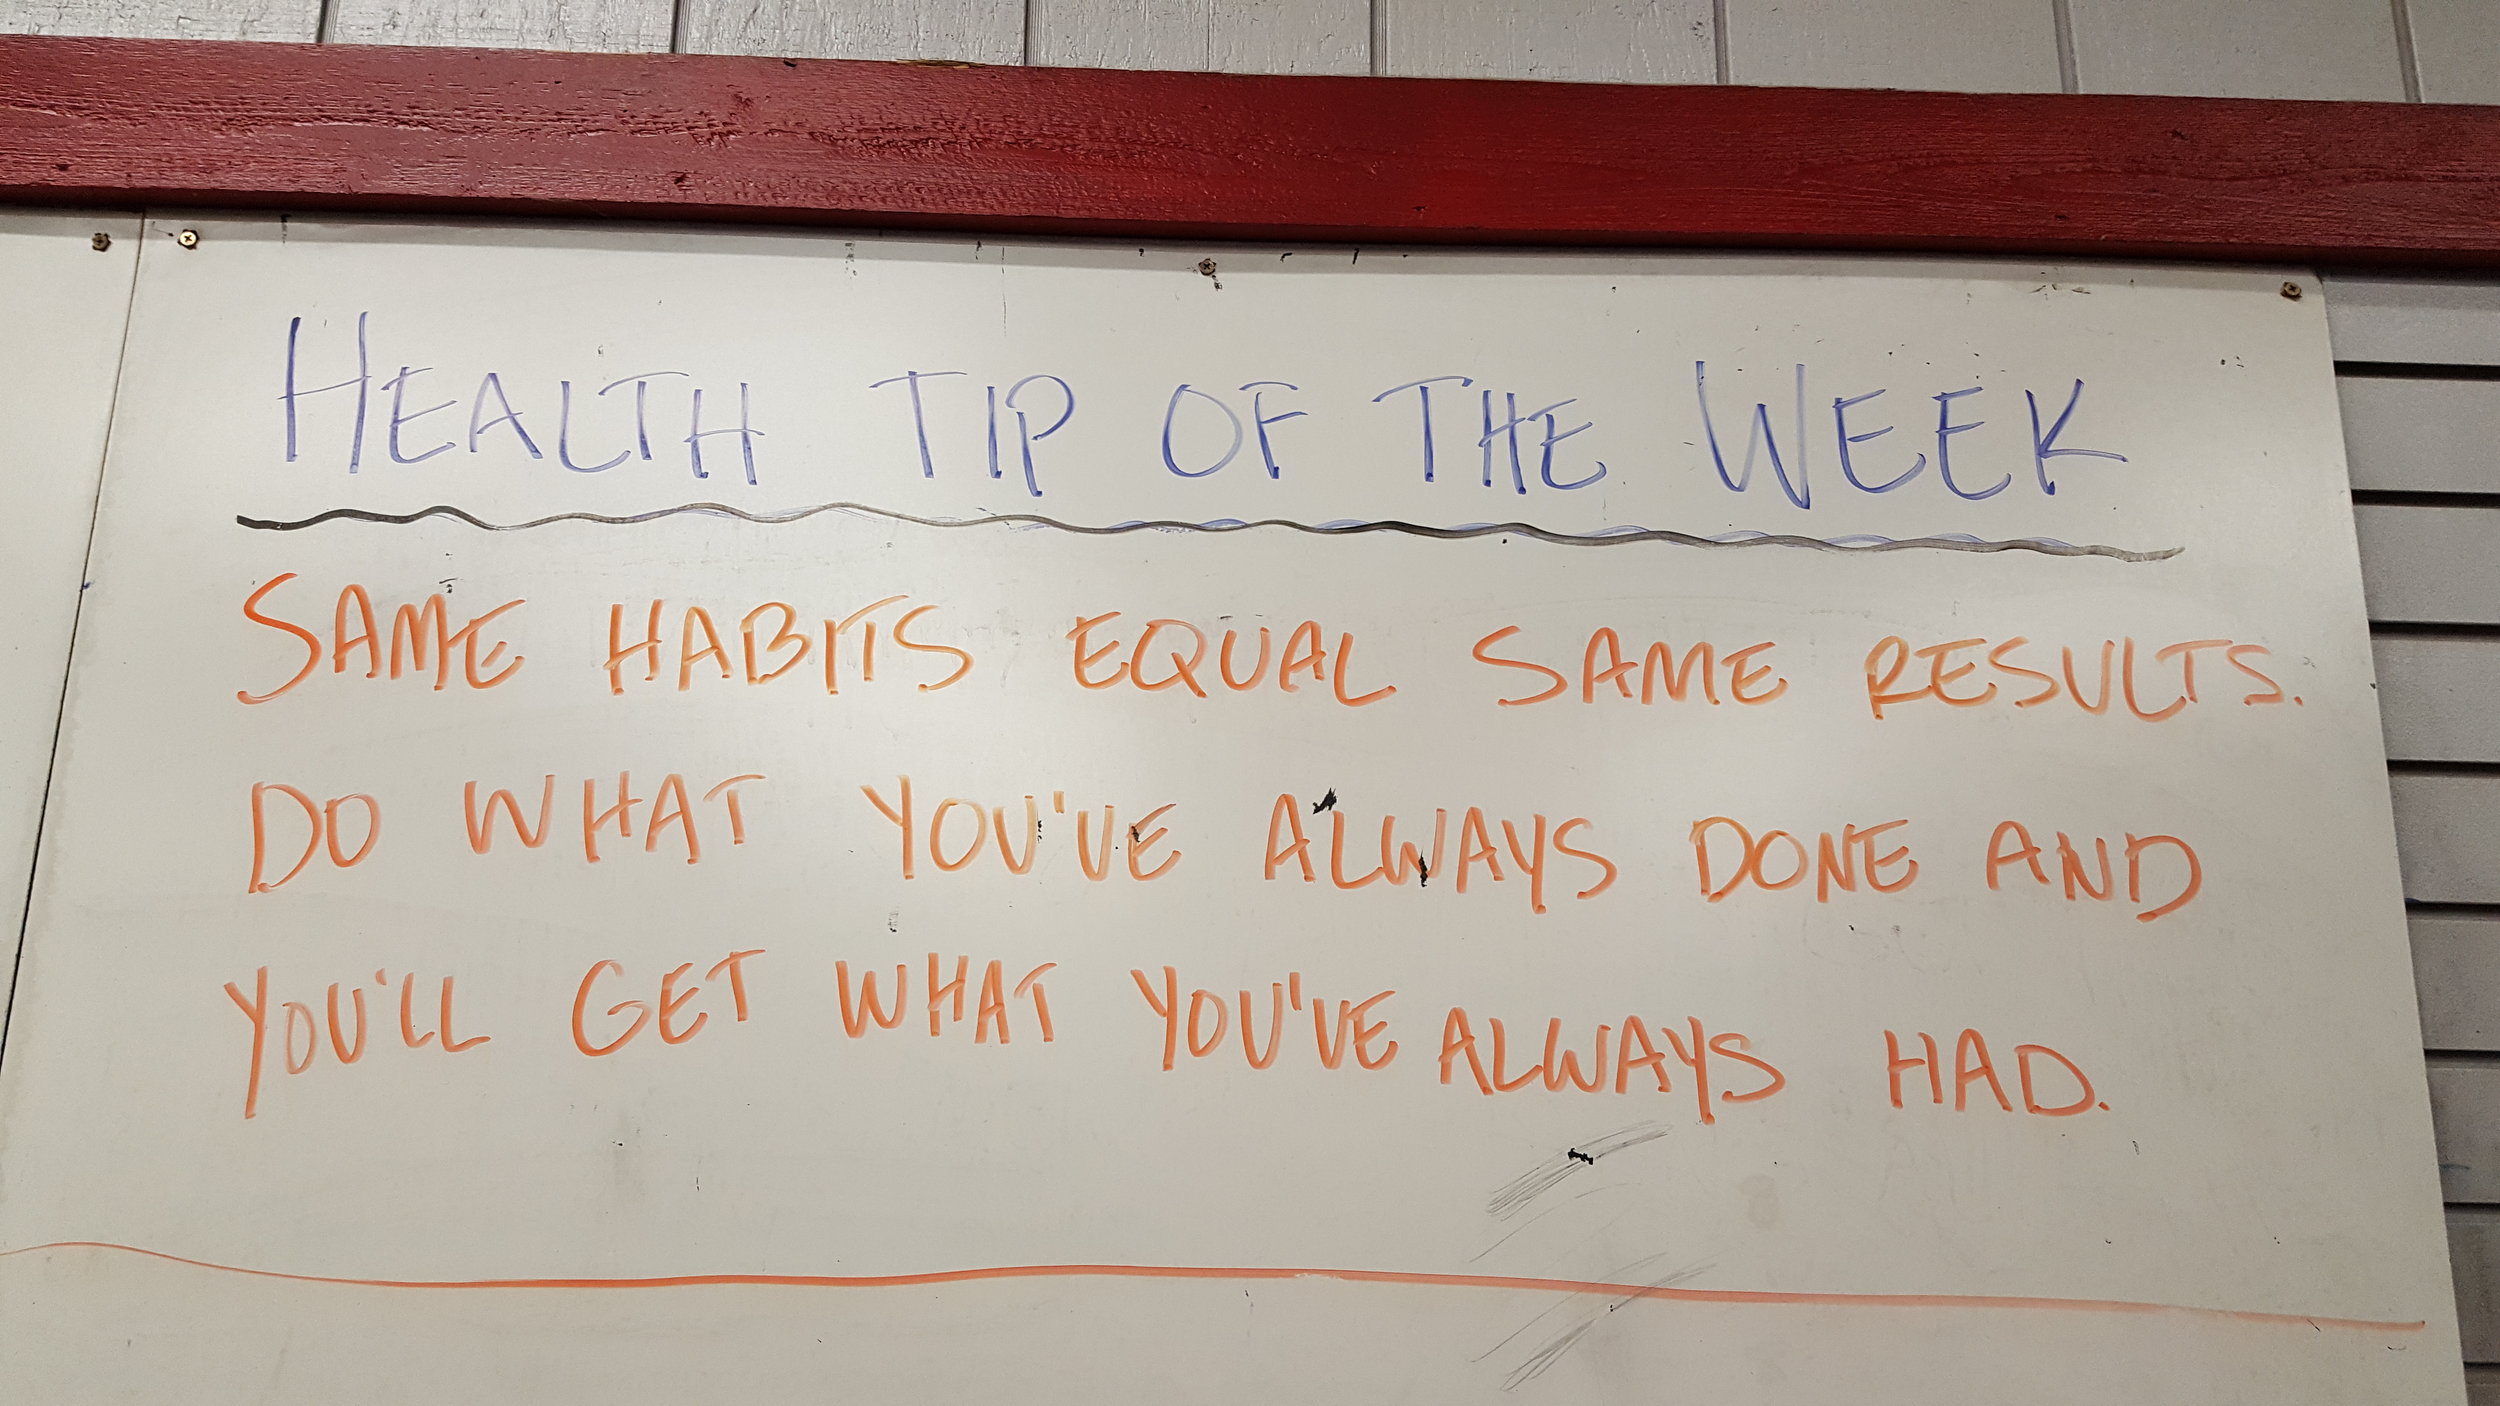 HEALTH TIP OF THE WEEK
SAME HABITS EQUAL SAME RESULTS.
DO WHAT YOU'VE ALWAYS DONE AND
YOU'LL GET WHAT YOU'VE ALWAYS HAD.